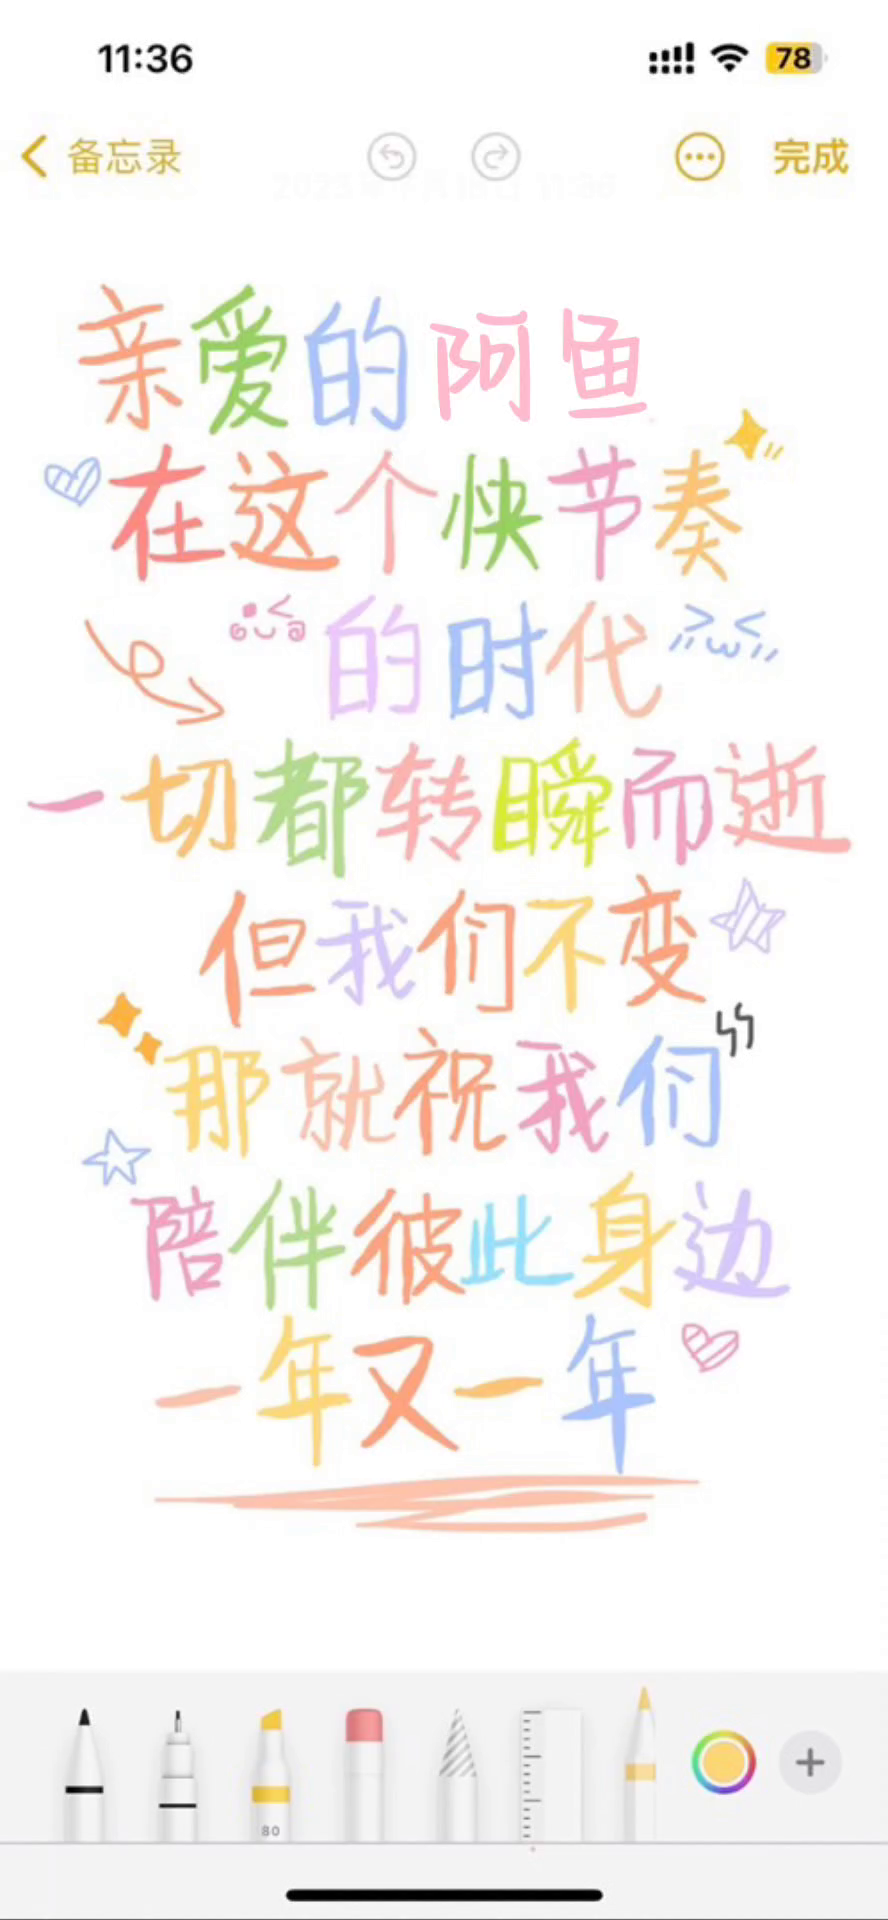 11:36 78
备忘录 完成
亲爱的阿鱼
在这个快节奏
的时代
一切都转瞬而逝
但我们不变
那就祝我们
陪伴彼此身边
一年又一年
80